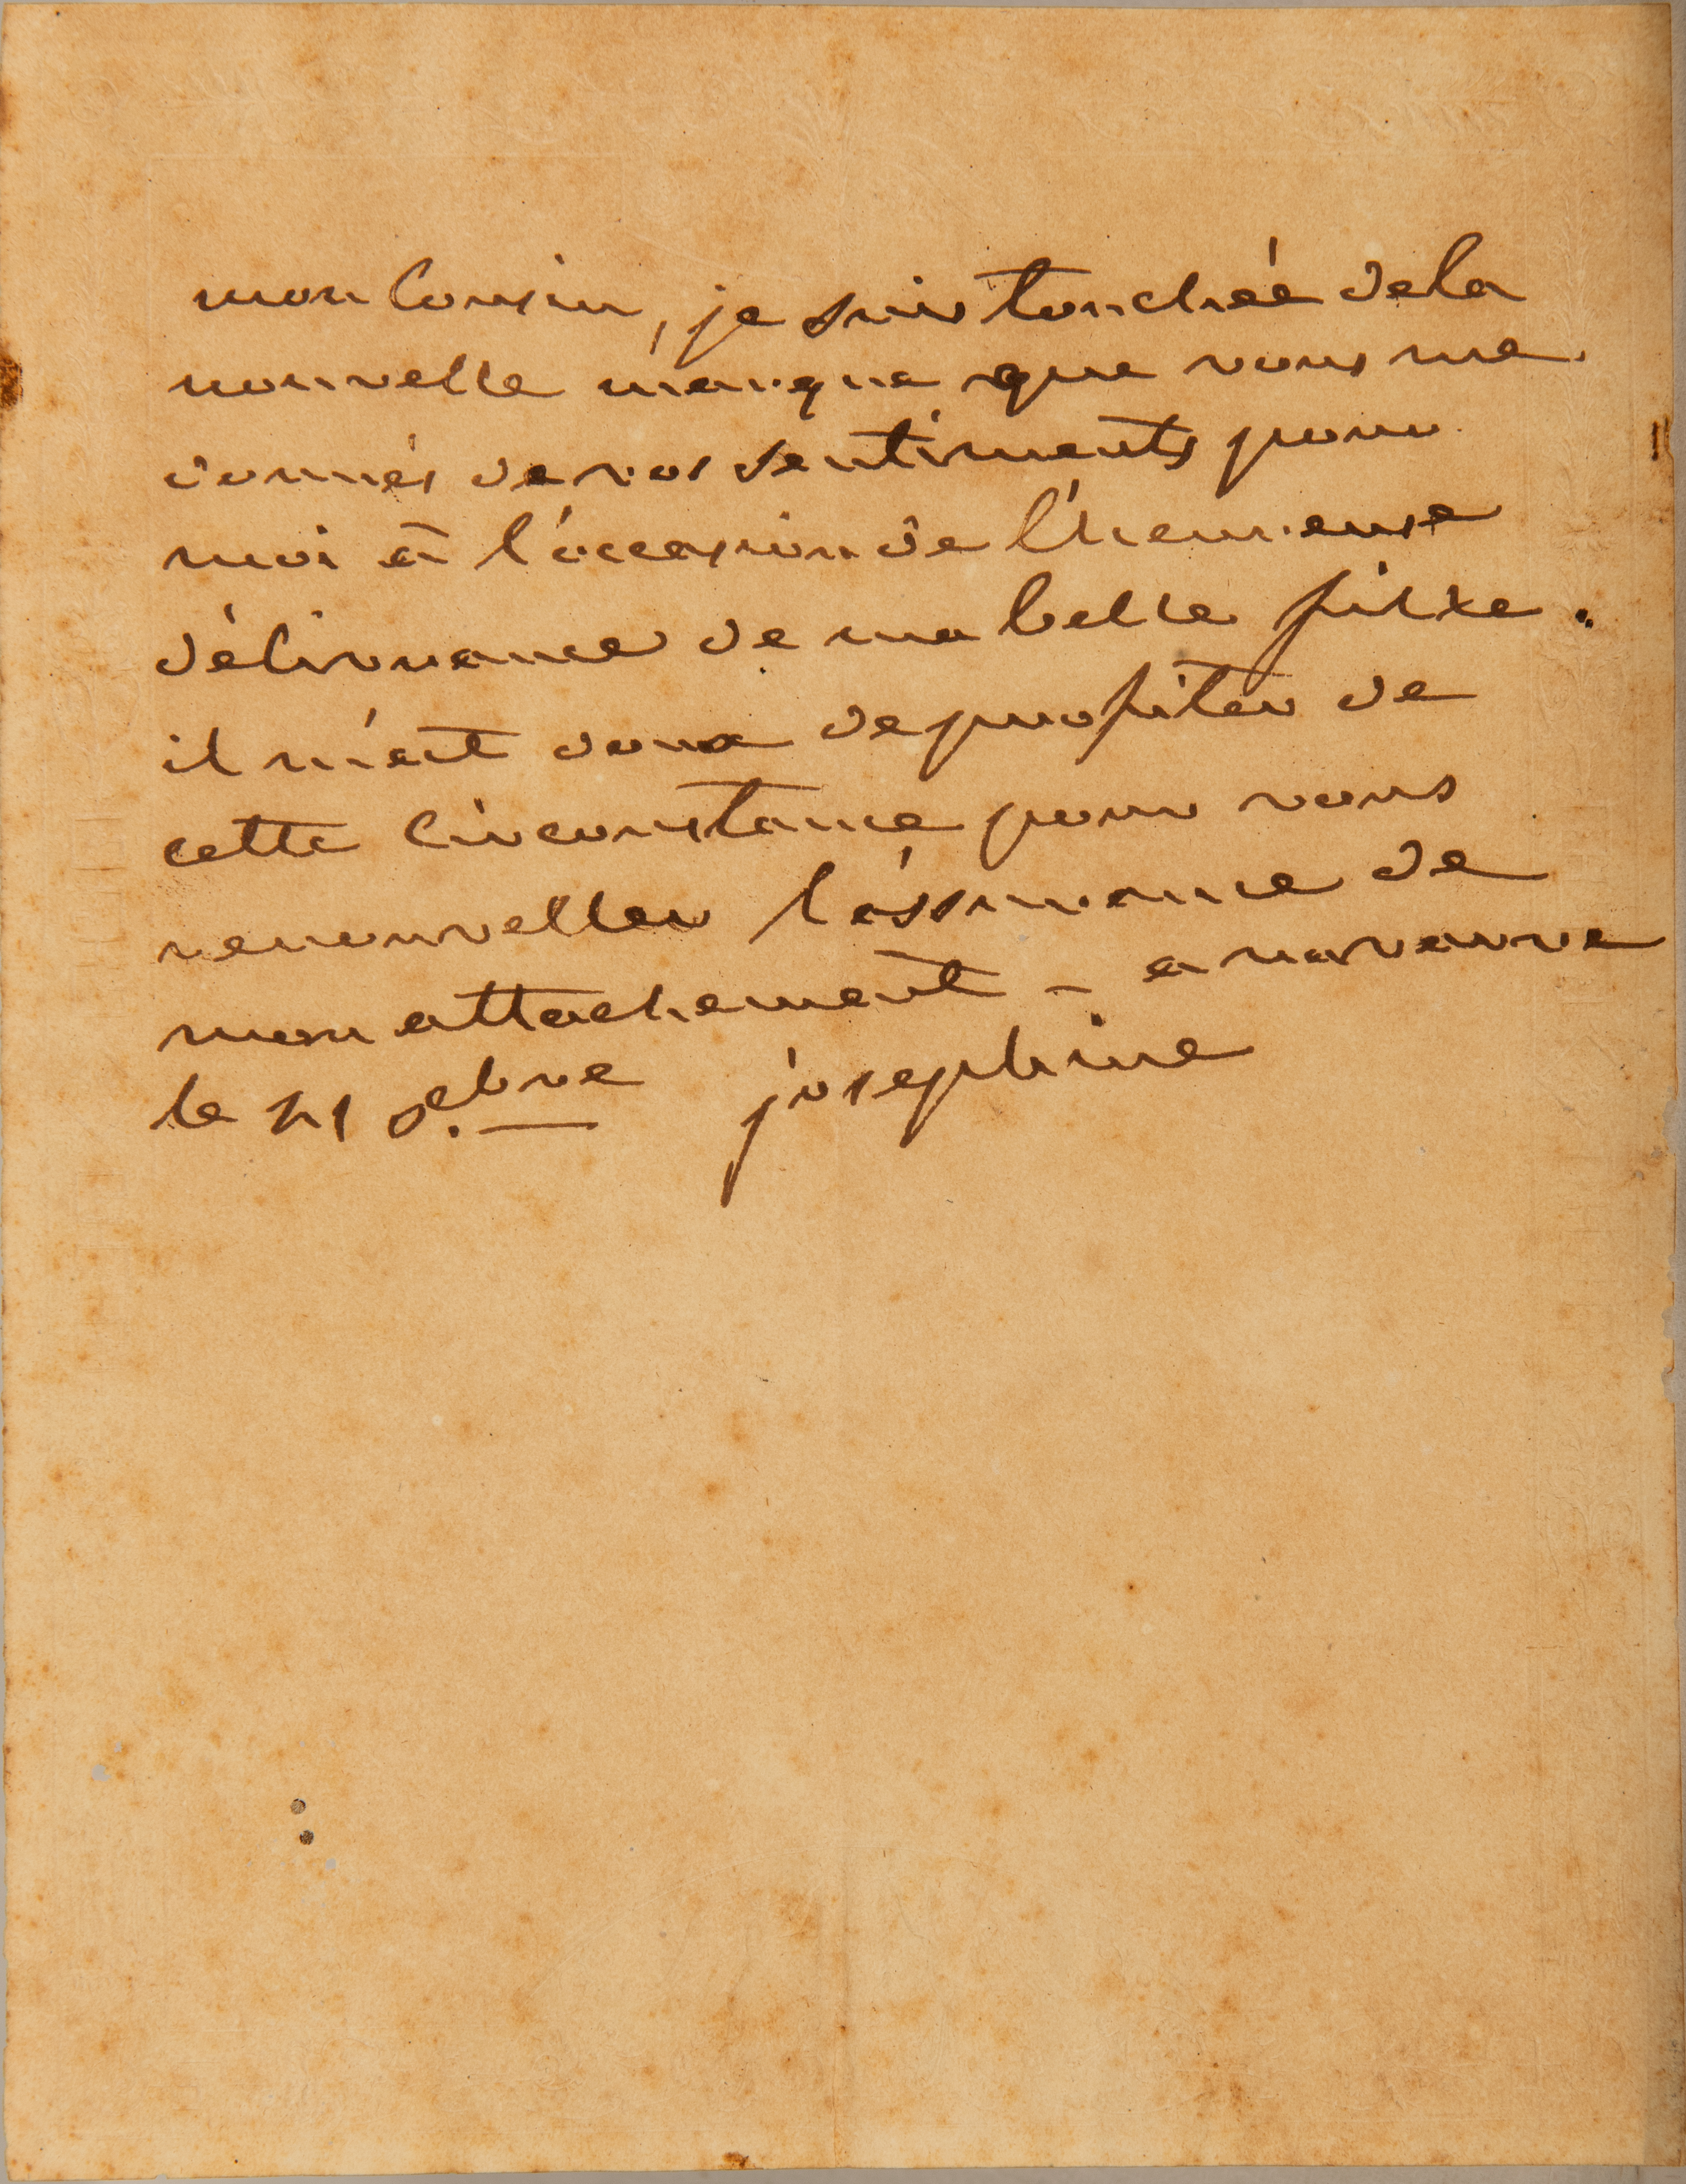 mon Cousin, je suis touchée dela
nouvelle marque que vous me
donnés de vos sentiments pour
moi à l'occasion de l'heureuse
délivrance de ma belle fille.
il m'est doux de profiter de
cette Circonstance pour vous
renouveller l'assurance de
mon attachement - a navarre
le 21 Xbre josephine